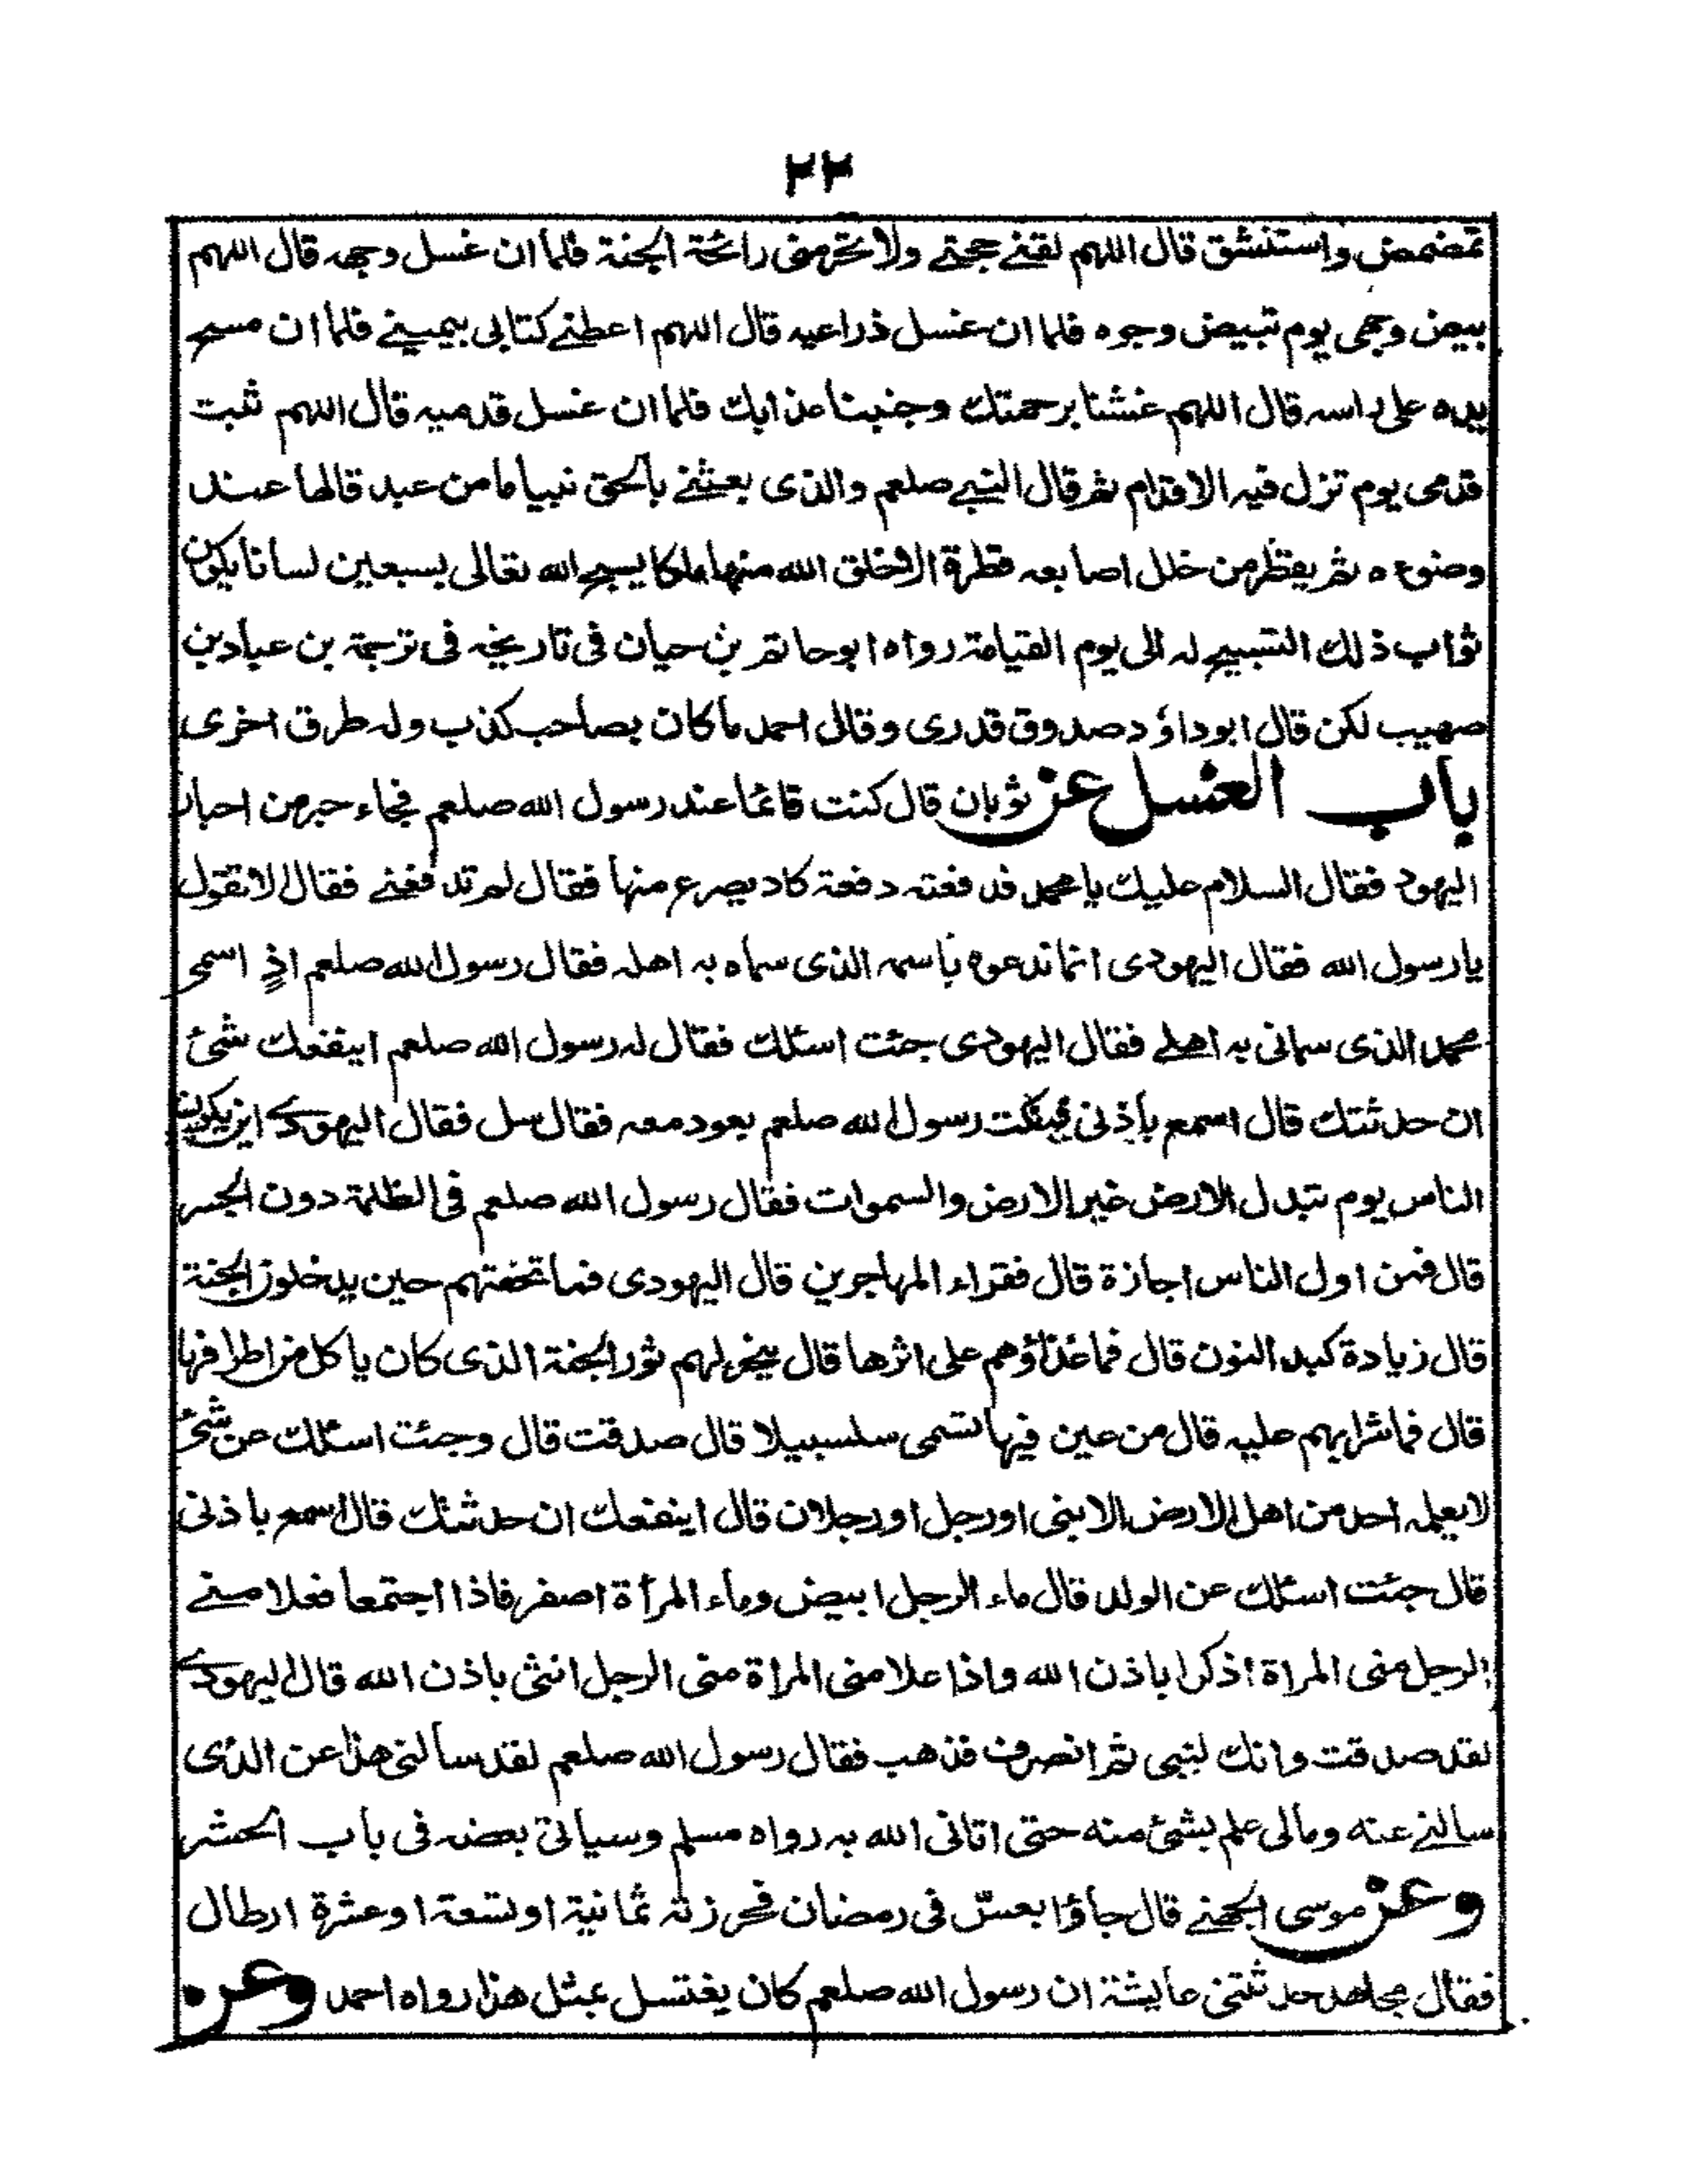 ٢٢
تمضمض واستنشق قال اللهم لقنے حجتے ولا تحرمنی رائحة الجنة فلما ان غسل وجهه قال اللهم
بیض وجهی یوم تبیض وجوه فلما ان غسل ذراعیه قال اللهم اعطنے کتابی بیمینے فلما ان مسح
یده علی راسه قال اللهم غشنا برحمتك وجنبنا عذابك فلما ان غسل قدمیه قال اللهم ثبت
قدمی یوم تزل فیه الاقدام ثم قال النبے صلعم والذی بعثنے بالحق نبیا ما من عبد قالها عند
وضوءه ثم یقطر من خلل اصابعه قطرة الا خلق الله منها ملکا یسبح الله تعالی بسبعین لسانا یکون
ثواب ذلك التسبیح له الی یوم القیامة رواه ابو حاتم بن حیان فی تاریخه فی ترجمة بن عباد بن
صهیب لکن قال ابو داؤد صدوق قدری وقال احمد ما کان بصاحب کذب وله طرق اخری
باب الغسل عن ثوبان قال کنت قائما عند رسول الله صلعم فجاء حبر من احبار
الیهود فقال السلام علیك یا محمد فدفعته دفعة کاد یصرع منها فقال لم تدفعنے فقال الا تقول
یا رسول الله فقال الیهودی انما ندعوه باسمه الذی سماه به اهله فقال رسول الله صلعم اذٍ اسمی
محمد الذی سمانی به اهلے فقال الیهودی جئت اسئلك فقال له رسول الله صلعم اینفعك شئ
ان حدثتك قال اسمع باذنی فینکت رسول الله صلعم بعود معه فقال سل فقال الیهودے این یکون
الناس یوم تبدل الارض غیر الارض والسموات فقال رسول الله صلعم فی الظلمة دون الجسر
قال فمن اول الناس اجازة قال فقراء المهاجرین قال الیهودی فما تحفتهم حین یدخلون الجنة
قال زیادة کبد النون قال فما غذاؤهم علی اثرها قال ینحر لهم ثور الجنة الذی کان یاکل من اطرافها
قال فما شرابهم علیه قال من عین فیها تسمی سلسبیلا قال صدقت قال وجئت اسئلك عن شئ
لا یعلمه احد من اهل الارض الا نبی او رجل او رجلان قال اینفعك ان حدثتك قال اسمع باذنی
قال جئت اسئلك عن الولد قال ماء الرجل ابیض وماء المرأة اصفر فاذا اجتمعا فعلا منے
الرجل منی المراة اذکرا باذن الله واذا علا منی المراة منی الرجل انثی باذن الله قال الیهودے
لقد صدقت وانك لنبی ثم انصرف فذهب فقال رسول الله صلعم لقد سالنی هذا عن الذی
سالنے عنه ومالی علم بشئ منه حتی اتانی الله به رواه مسلم وسیاتی بعضه فی باب الحشر
وعن موسی الجهنے قال جاؤا بعسّ فی رمضان فحرزته ثمانیة او تسعة او عشرة ارطال
فقال مجاهد حدثتنی عایشة ان رسول الله صلعم کان یغتسل بمثل هذا رواه احمد وعن